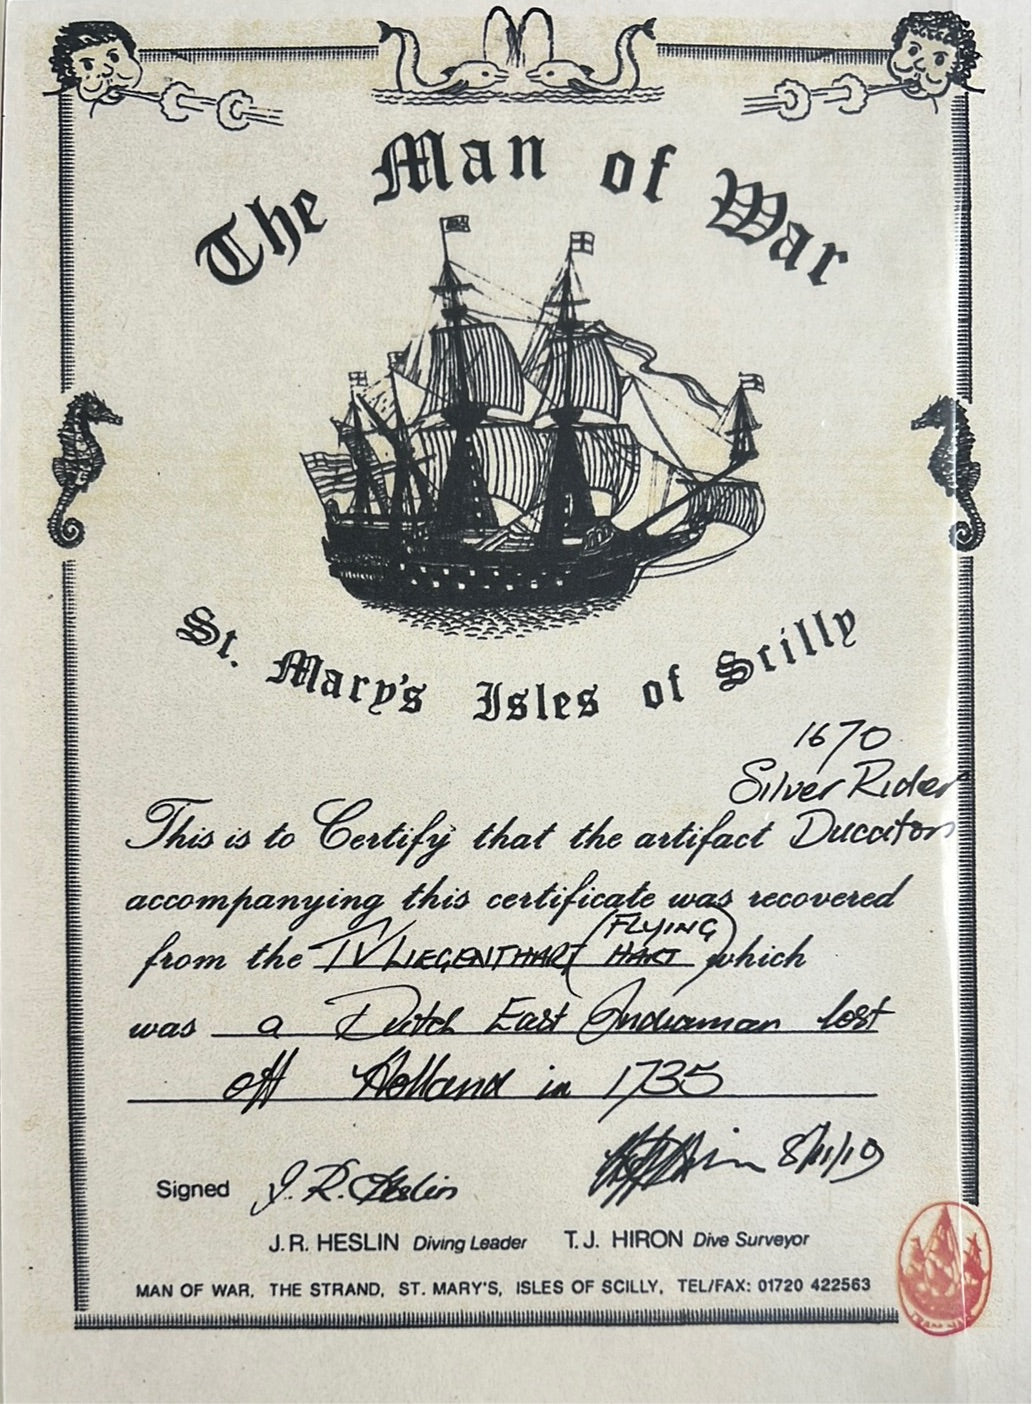 The Man of War
St. Mary's Isles of Scilly
1670
Silver Rider
This is to Certify that the artifact Ducaton
accompanying this certificate was recovered
(FLYING
from the T'VLIEGENTHART HART) which
was a Dutch East Indiaman lost
off Holland in 1735
8/11/19
Signed J. R. Heslin
J.R. HESLIN Diving Leader T.J. HIRON Dive Surveyor
MAN OF WAR, THE STRAND, ST. MARY'S, ISLES OF SCILLY, TEL/FAX: 01720 422563